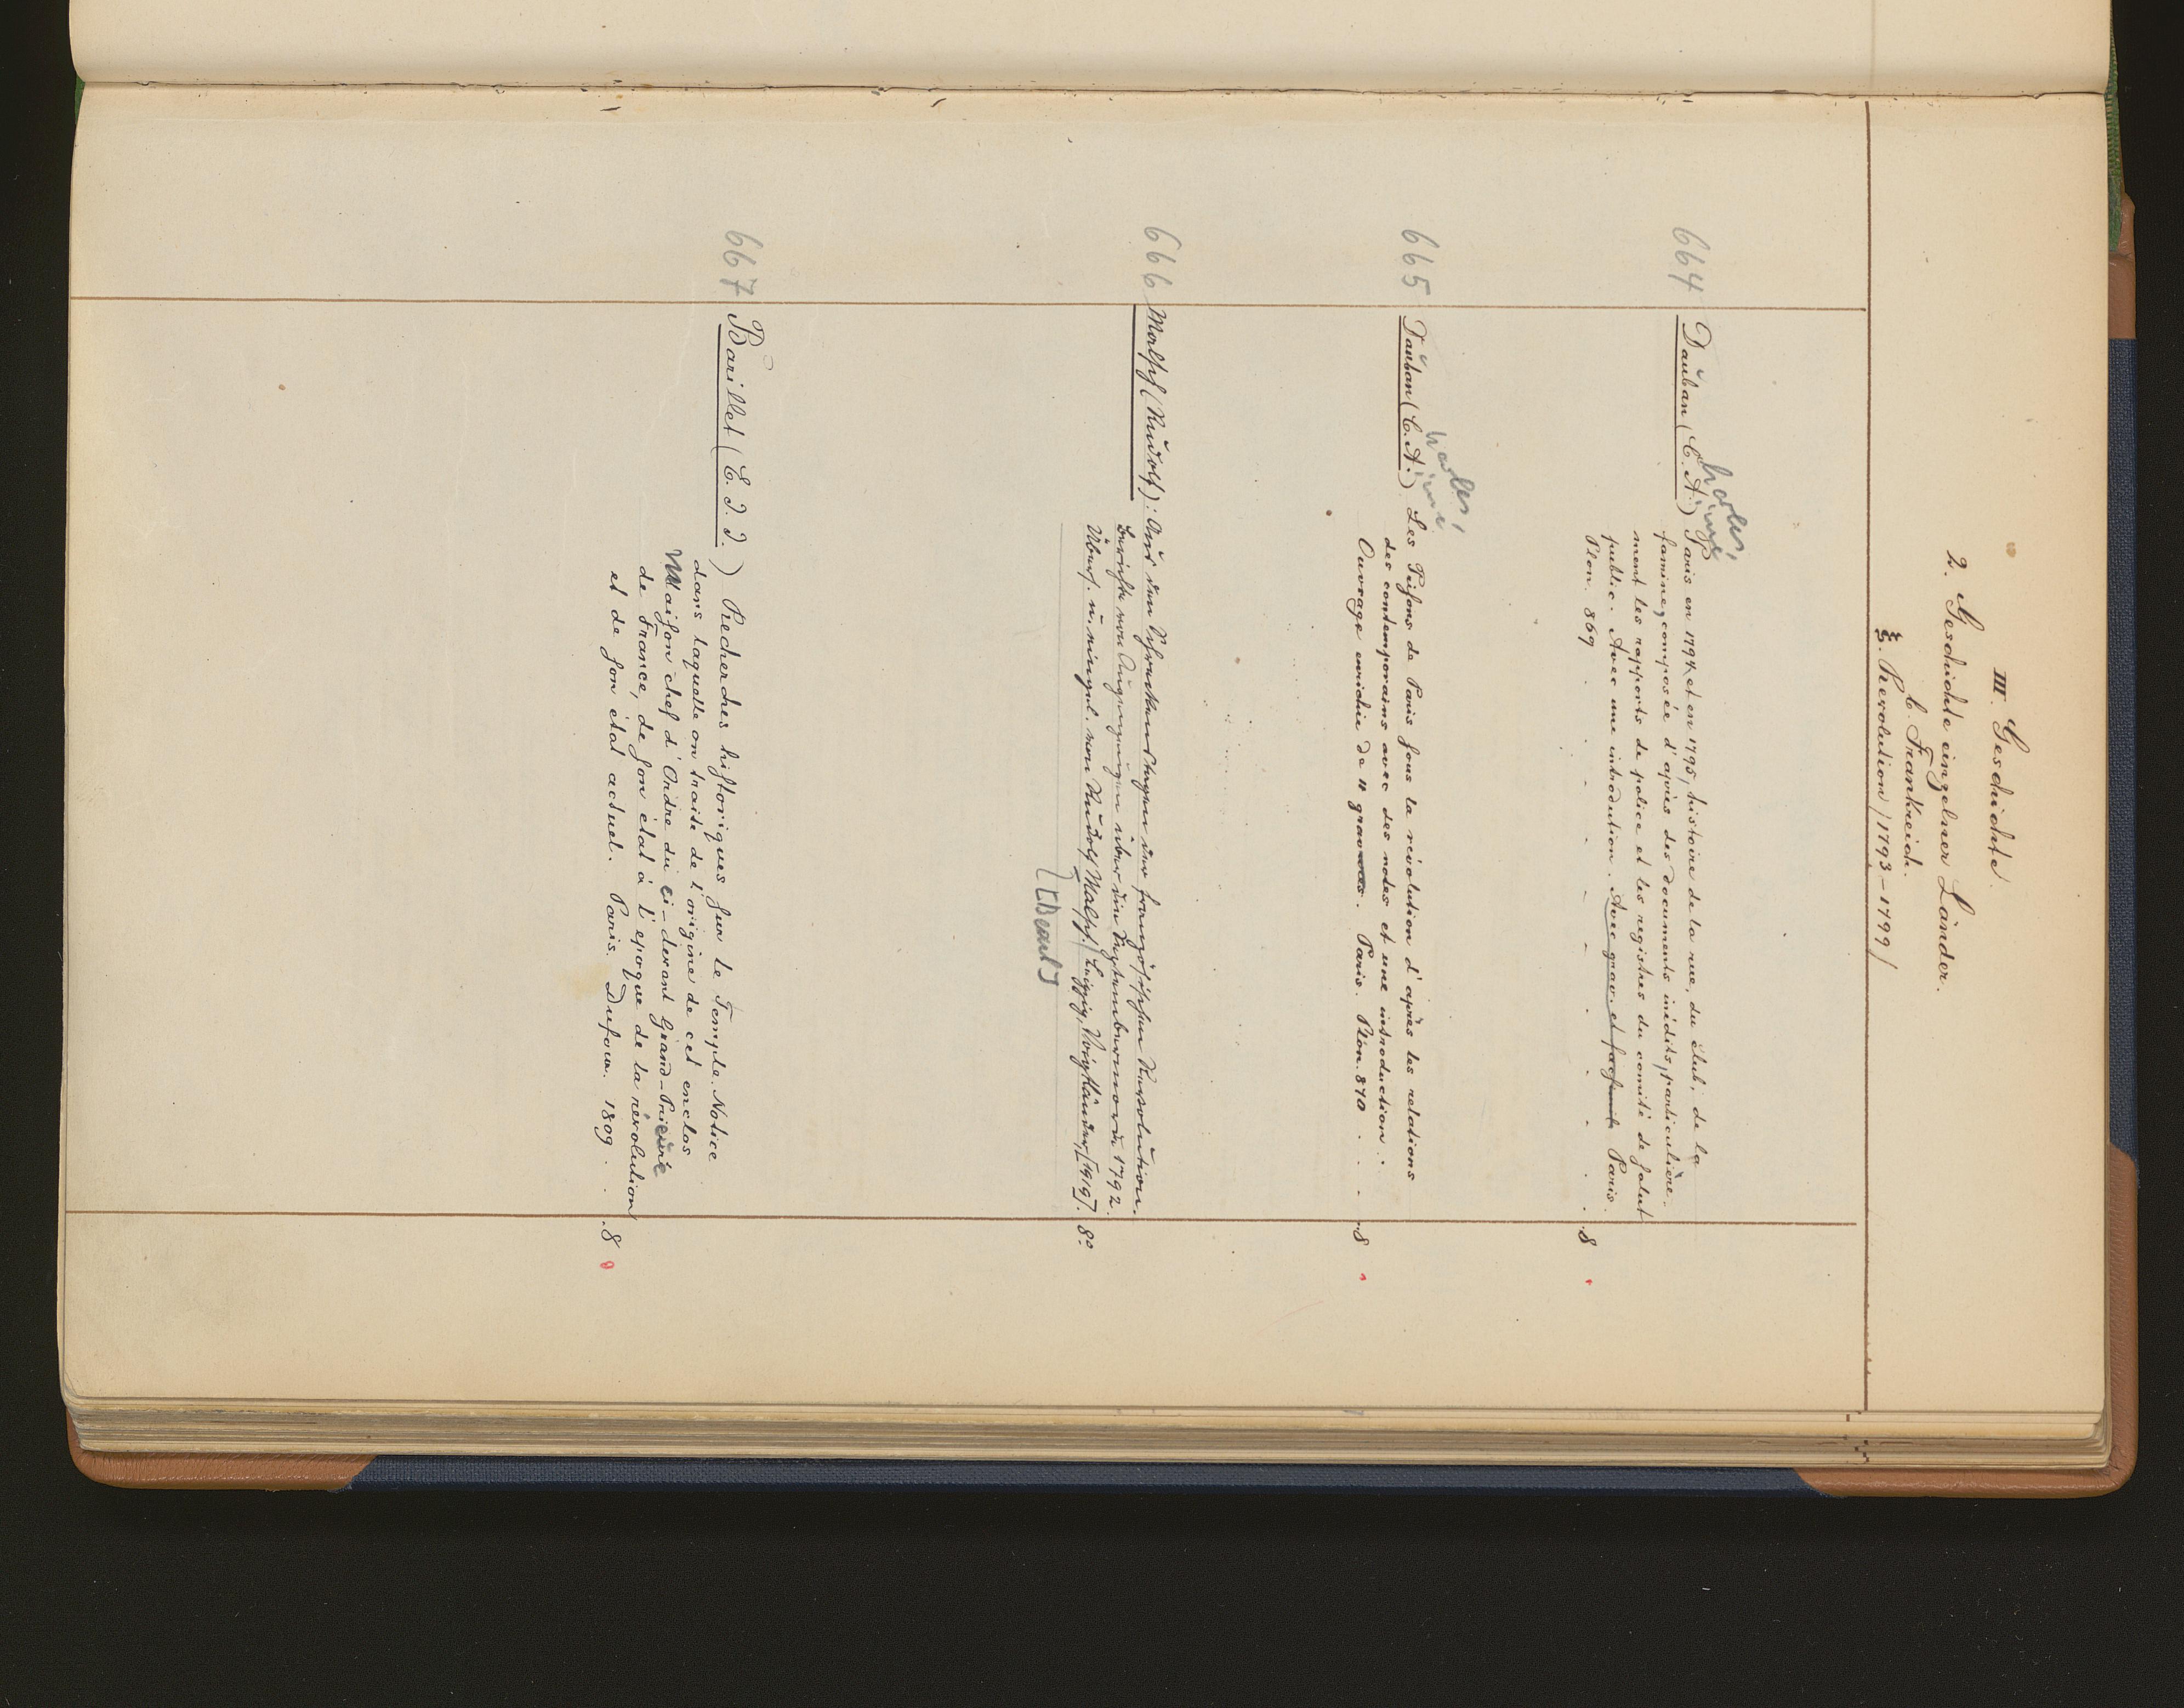 III. Geschichte.
2. Geschichte einzelner Länder.
b. Frankreich.
ξ. Revolution /1793–1799/
harles, imé
664 Dauban (C. A.) Paris en 1794 et en 1795, histoire de la rue, du club, de la
famine, composée d'après des documents inédits, particulière-
ment les rapports de police et les registres du comité de salut
public. Avec une introduction. Avec grav. et facsimile Paris.
Plon. 869 . . . . . . . . . . 8
harles, imé
665 Dauban (C. A.) Les Prisons de Paris sous la révolution d'après les relations
des contemporains avec des notes et une introduction.
Ouvrage enrichie de 11 gravures. Paris. Plon. 870 . . . 8
666 Walsch (Rudolf): Aus den Schreckenstagen der französischen Revolution.
Berichte von Augenzeugen über die Septembermorde 1792.
Übers. u. eingel. von Rudolf Walsch. Leipzig, Voigtländer, [1919]. 8º
667 Barillet (E. J. J.) Recherches historiques sur le Temple. Notice
dans laquelle on traite de l'origine de cet enclos
Maison chef d'Ordre du ci-devant Grand-Prieuré
de France, de son état à l'epoque de la révolution
et de son état actuel. Paris. Dufour. 1809 . . 8